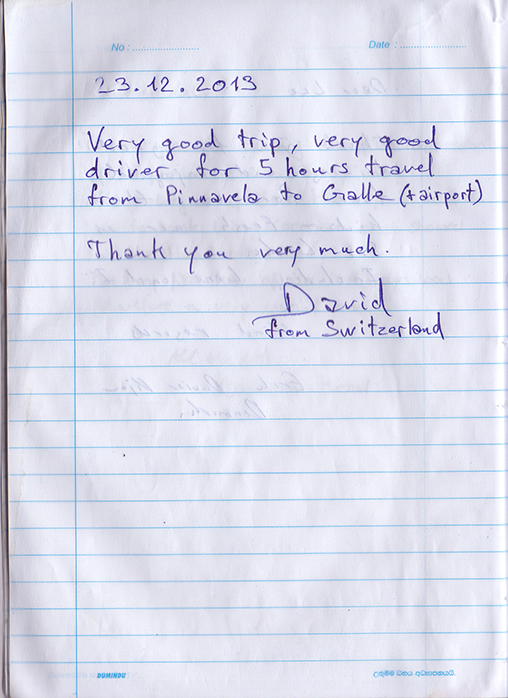 No : ........................
Date : ........................
23.12.2013
Very good trip, very good
driver for 5 hours travel
from Pinnavela to Galle (+airport)
Thank you very much.
David
from Switzerland
DUMINDU
උතුම්ම ධනය අධ්‍යාපනයයි.